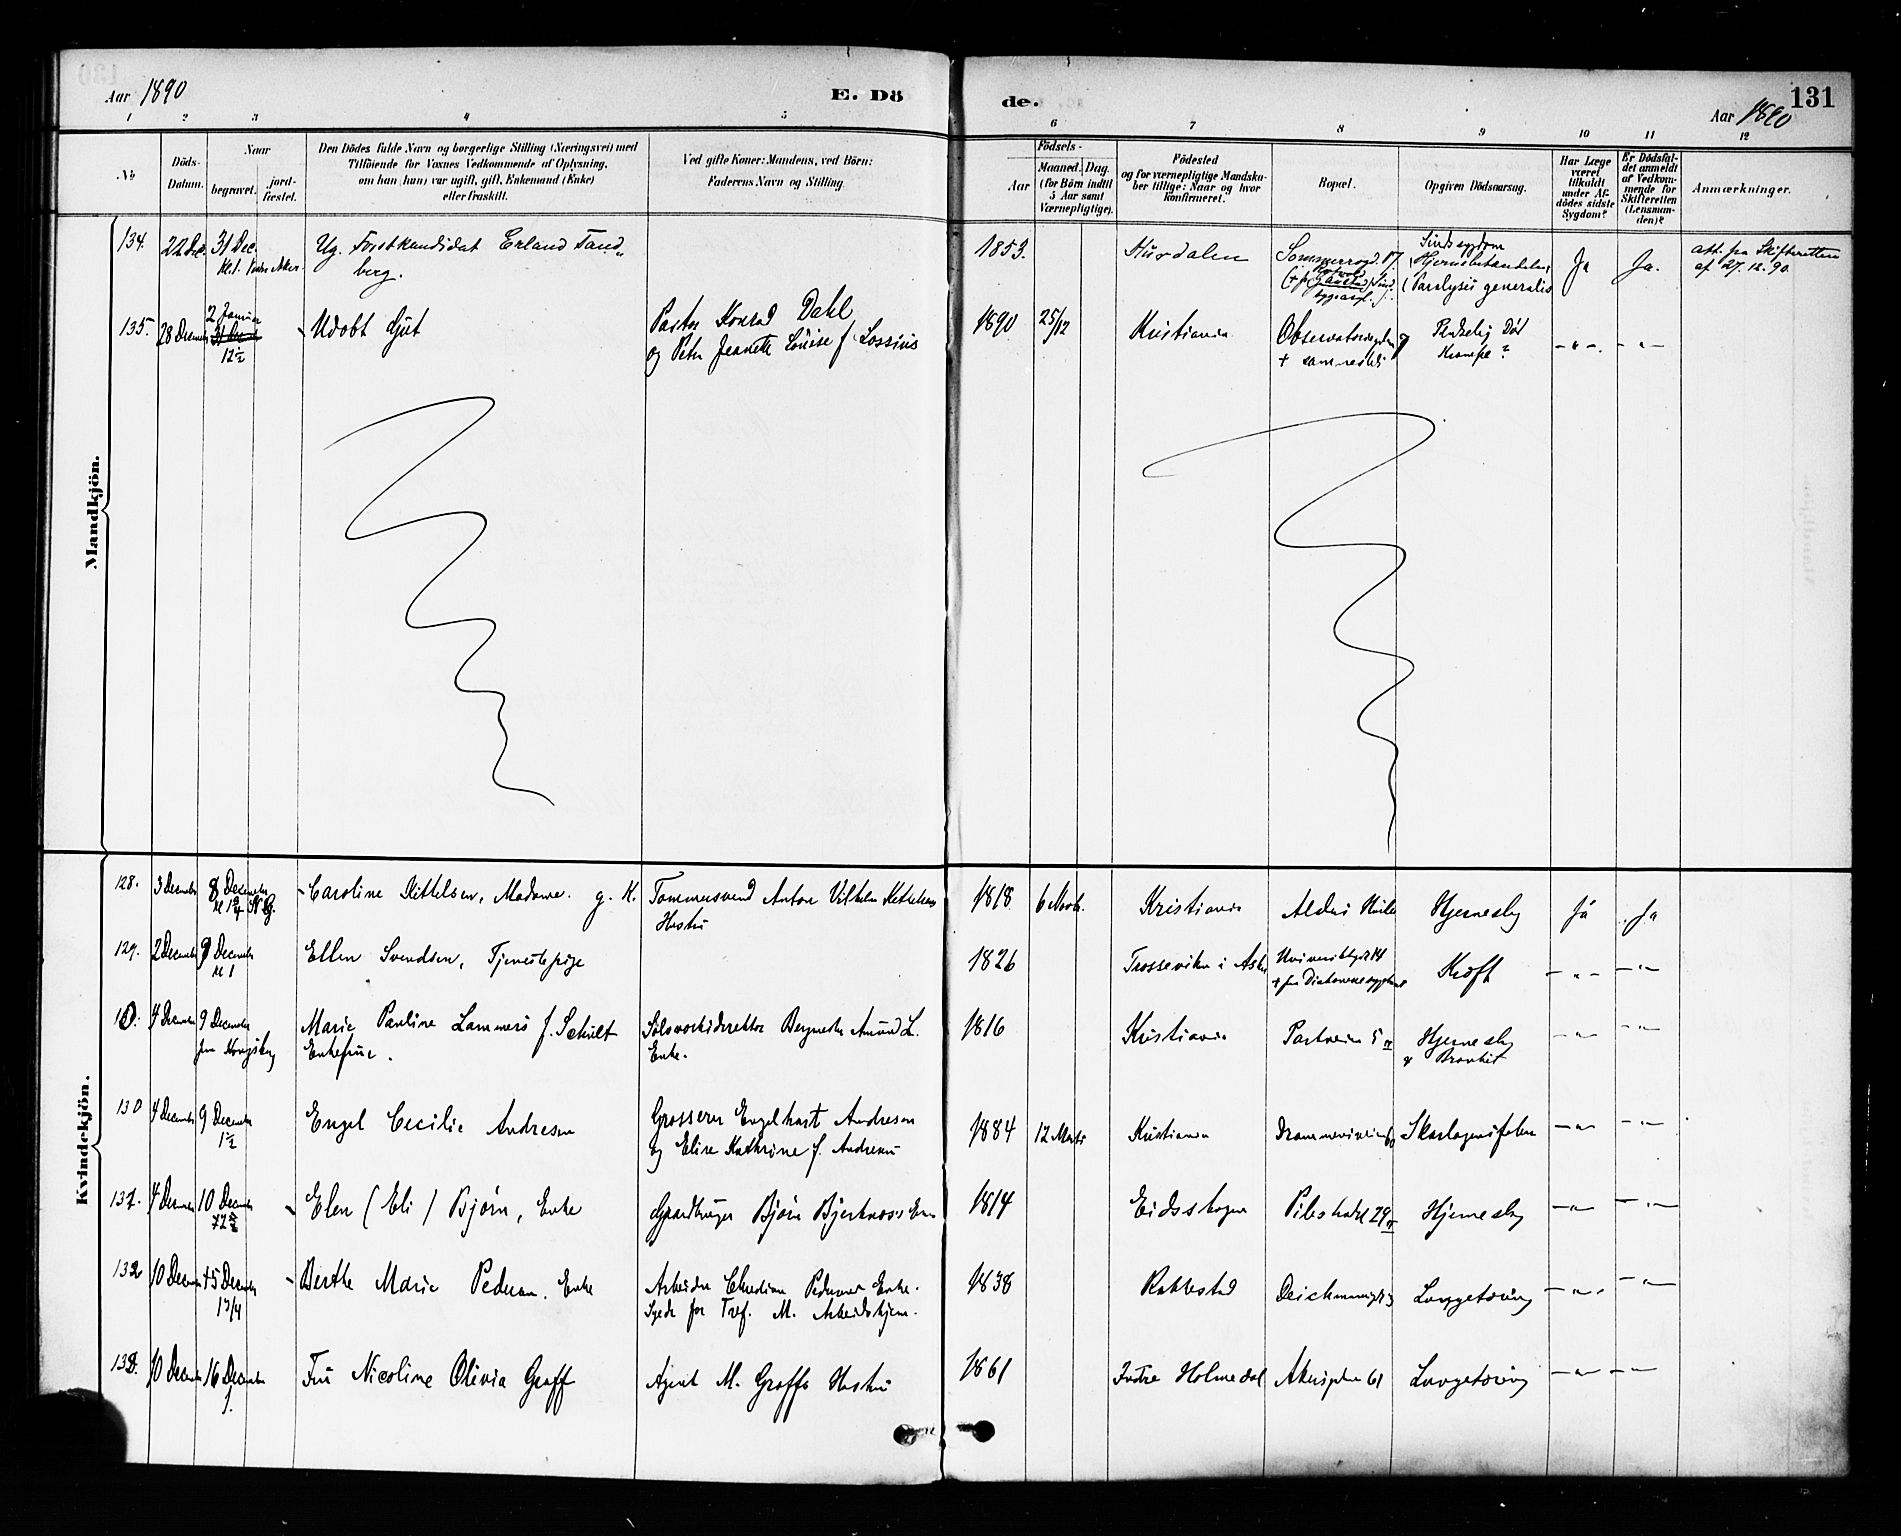 131
Aar 1890
E. Dö
de.
Aar 1890
1 2 3 4 5 6 7 8 9 10 11 12
№
Döds-
Datum.
Naar
begravet.
jord-
fæstet.
Den Dödes fulde Navn og borgerlige Stilling (Næringsvei) med
Tilföiende for Voxnes Vedkommende af Oplysning,
om han (hun) var ugift, gift, Enkemand (Enke)
eller fraskilt.
Ved gifte Koner: Mandens, ved Börn:
Faderens Navn og Stilling.
Födsels-
Aar
Maaned. Dag.
(for Börn indtil
5 Aar samt
Værnepligtige).
Födested
og for værnepligtige Mandska-
ber tillige: Naar og hvor
konfirmeret.
Bopæl.
Opgiven Dödsaarsag.
Har Læge
været
tilkaldt
under Af-
dödes sidste
Sygdom?
Er Dödsfal-
det anmeldt
af Vedkom-
mende for
Skifteretten
(Lensman-
den)?
Anmærkninger.
Mandkjön.
134. 22 Dec. 31 Dec. Ug. Forstkandidat Erland Tand-
berg.
1853. Hurdalen Sommerrogd. 17 Sindssygdom
Paralysis generalis
Ja Ja. att. fra Skifteretten
af 27. 12. 90.
135. 28 Decemb 2 Januar
12½
Udöbt Gut
Pastor Konrad Dahl
og Petra Jeanette Louise f. Lossius
1890 25/12 Kristiania Observatoriegden 9
+ sammesteds
Pludselig Död
Krampe?
-"-. -"-
Kvindekjön.
128. 3 December 8 December
Caroline Kittelsen, Madame. g. K. Tømmersvend Anton Vilhelm Kittelsens
Hustru
1818 6 Novb. Kristiania Hjerneslag Ja Ja
129. 2 December 9 December
kl 1
Ellen Svendsen, Tjenestepige
1826 Kræft -"- -"-
4 December 9 December
fra Kongsberg
Marie Pauline Lammers f. Schult
Enkefrue.
Sölvverksdirektør Bergmester Amund L.
Enke.
1816 Kristiania Parkveien 5 Hjerneslag
og Bronkit
-"- -"-
130 4 December 9 December
1½
Engel Cecilie Andresen
Grosserer Engelhart Andresen
og Elise Kathrine f. Andresen
1884 12 Marts Kristiania Drammensveien Skarlagensfeber -"- -"-
131. 4 December 10 December
Elen (Eli) Bjørn, Enke
Gaardbruger Bjørn Enke
1814 Eidsskogen Pilestrædet 29 Hjerneslag -"- -"-
132 10 December 15 December
Berthe Marie Pedersen. Enke
Arbeider Christian Pedersens Enke.
Syede for Arbeidshjem.
1838 Rakkestad Deichmansgd Lungetæring -"- -"-
133. 10 December 16 December
1.
Fru Nicoline Olivia Graff
Agent M. Graffs Hustru
1861 Indre Holmedal Akersgaden 61 Lungetæring -"- -"-